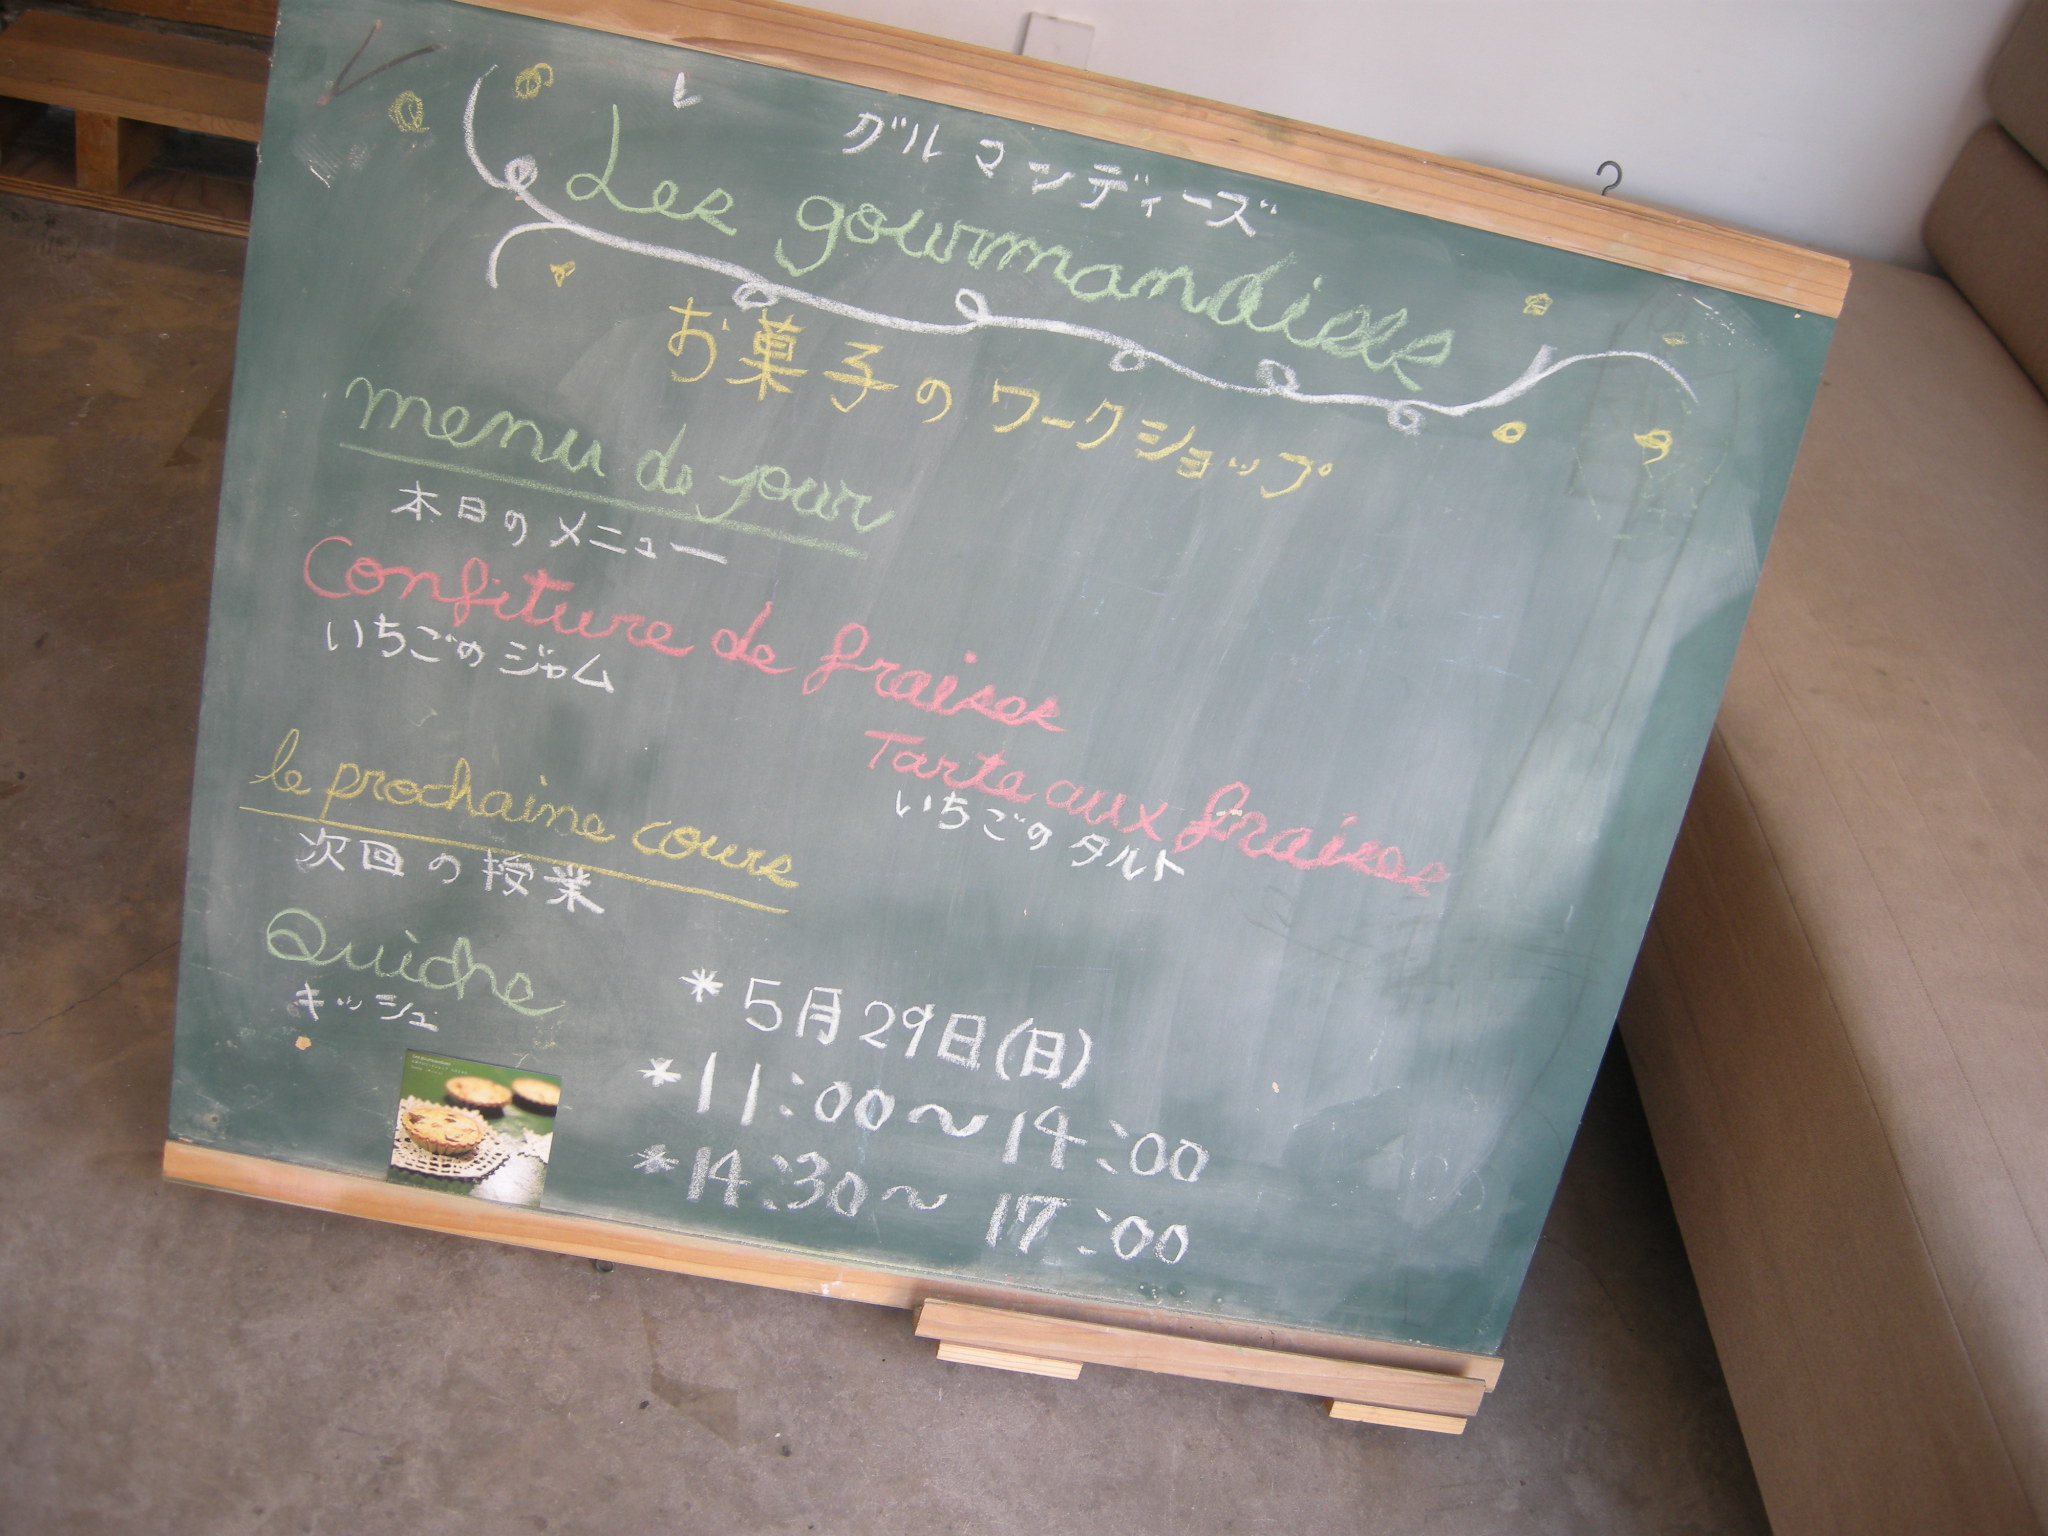 レ グルマンディーズ
Les gourmandises
お菓子のワークショップ
menu de jour
本日のメニュー
Confiture de fraises
いちごのジャム
Tarte aux fraises
いちごのタルト
le prochaine cours
次回の授業
Quiche
キッシュ
*5月29日(日)
*11:00〜14:00
*14:30〜17:00